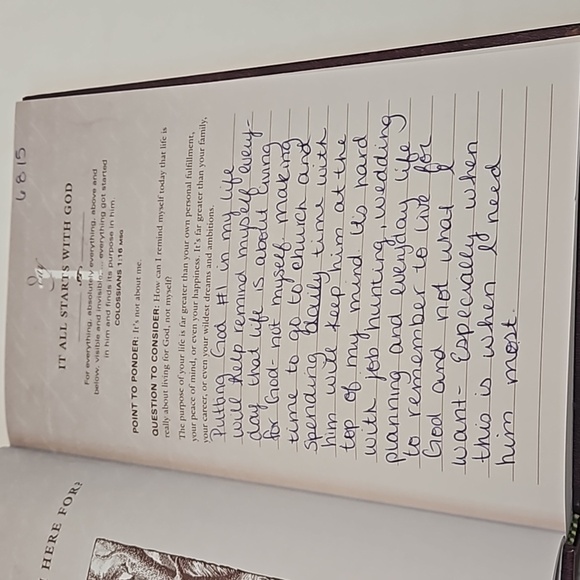 6815
Day
1
IT ALL STARTS WITH GOD
For everything, absolutely everything, above and
below, visible and invisible, ... everything got started
in him and finds its purpose in him.
COLOSSIANS 1:16 MSG
POINT TO PONDER: It's not about me.
QUESTION TO CONSIDER: How can I remind myself today that life is
really about living for God, not myself?
The purpose of your life is far greater than your own personal fulfillment,
your peace of mind, or even your happiness. It's far greater than your family,
your career, or even your wildest dreams and ambitions.
Putting God #1 in my life
will help remind myself every-
day that life is about living
for God - not myself. making
time to go to church and
spending daily time with
him will keep him at the
top of my mind. It's hard
with job hunting, wedding
planning and everyday life
to remember to live for
God and not what I
want - Especially when
this is when I need
him most.
HERE FOR?